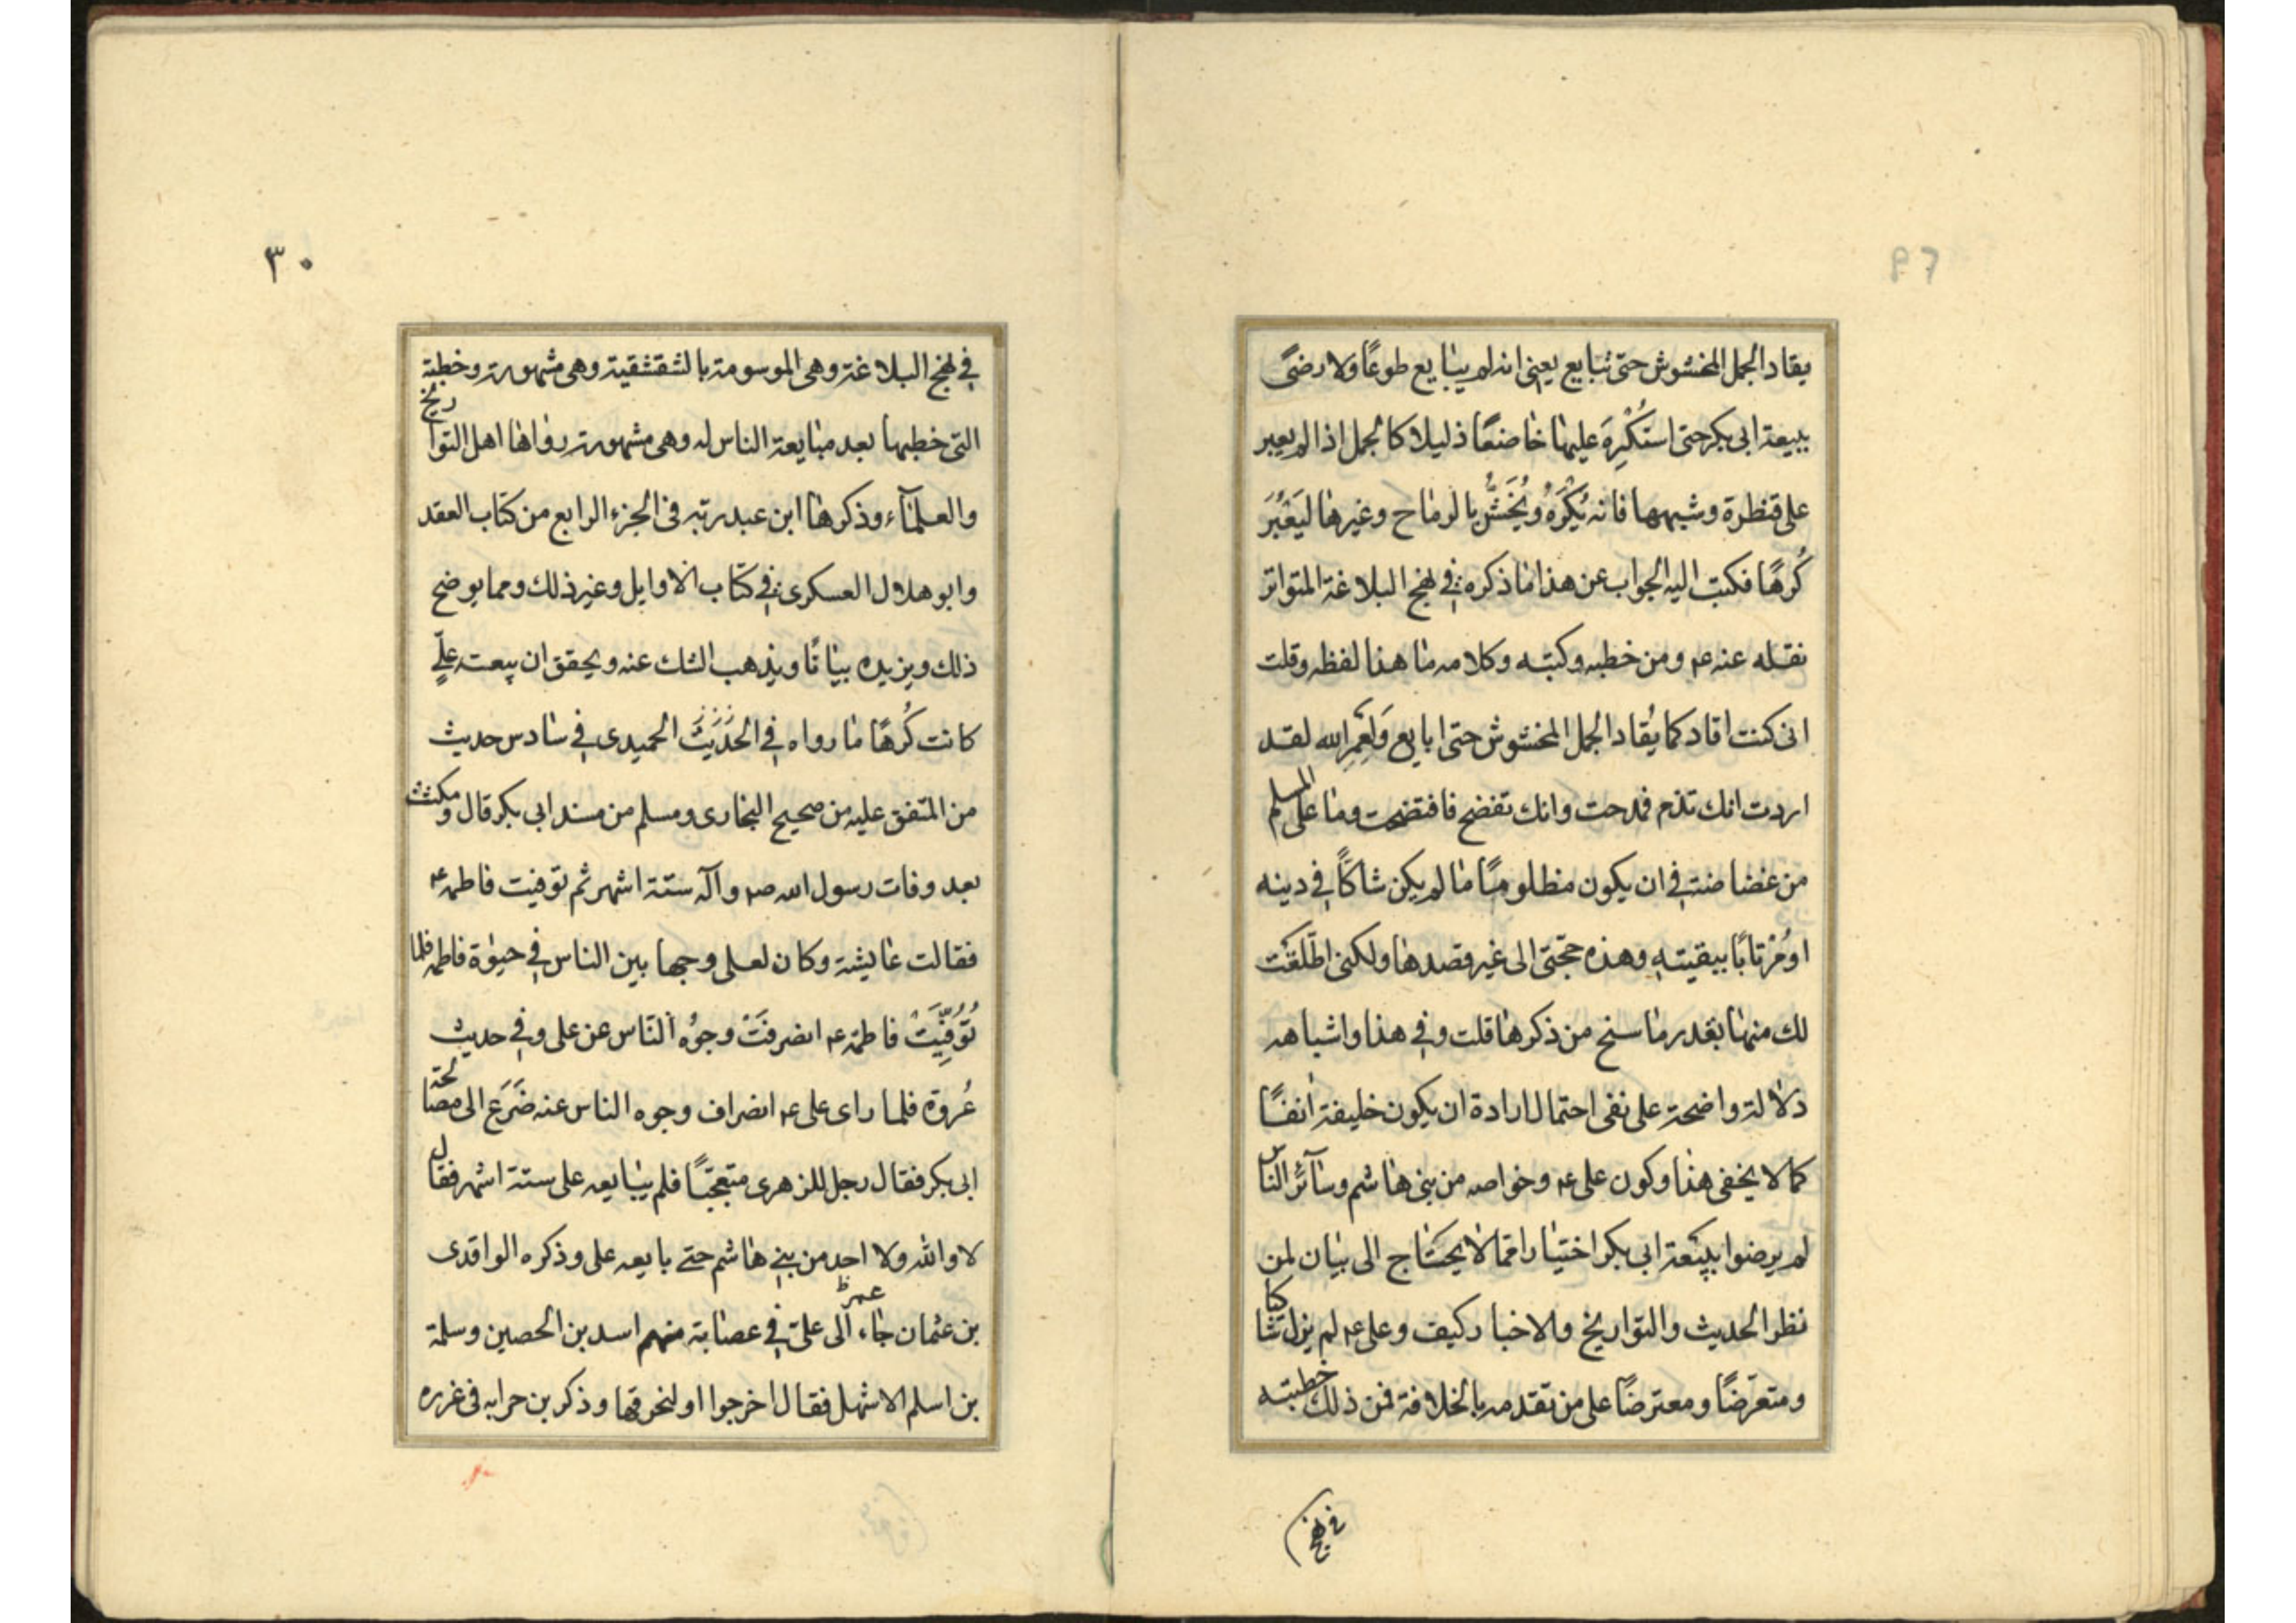 يقاد الجمل المخشوش حتى تبايع يعنى انه لم يبايع طوعًا ولا رضىً
ببيعة ابى بكر حتى استُكْرِهَ عليها خاضعًا ذليلا كالجمل اذا لم يعبر
على قنطرة وشبهها فانه يُكْرَهُ ويُخَشُّ بالرماح وغيرها ليَعْبُرَ
كُرهًا فكتب اليه الجواب عن هذا ما ذكره فى نهج البلاغة المتواتر
نقله عنه ع‍ ومن خطبه وكتبه وكلامه ما هذا لفظه وقلت
انى كنت اقاد كما يُقاد الجمل المخشوش حتى ابايع وَلَعَمرِ الله لقد
اردت انك تذم فمدحت وانك تفضح فافتضحت وما على المسلم
من غضاضة فى ان يكون مظلومًا ما لم يكن شاكًّا فى دينه
او مُرْتابًا بيقينه وهذه حجّتى الى غير قصدها ولكنى اطلقت
لك منها بقدر ما سنح من ذكرها قلت وفى هذا واشباهه
دلالة واضحة على نفى احتمال ارادة ان يكون خليفة آنفًا
كما لا يخفى هذا وكون على ع‍ وخواصه من بنى هاشم وسآئر الناس
لم يرضوا ببيعة ابى بكر اختيارا مما لا يحتاج الى بيان لمن
نظر الحديث والتواريخ والاخبار كيف وعلى ع‍ لم يزل شاكيا
ومتعرّضًا ومعترضًا على من تقدمه بالخلافة فمن ذلك خطبته
فى نهج
٣٠
فى نهج البلاغة وهى الموسومة بالشقشقية وهى مشهورة وخطبة
التى خطبها بعد مبايعة الناس له وهى مشهورة رواها اهل التواريخ
والعلمآء وذكرها ابن عبد ربه فى الجزء الرابع من كتاب العقد
وابو هلال العسكرى فى كتاب الاوايل وغير ذلك ومما يوضح
ذلك ويزيده بيانًا ويذهب الشك عنه ويحقق ان بيعة علىٍّ
كانت كُرهًا ما رواه فى الحَدَيثَ الحميدى فى سادس حديث
من المتفق عليه من صحيح البخارى ومسلم من مسند ابى بكر قال ومكثت
بعد وفات رسول الله ص‍ وآله ستة اشهر ثم توفيت فاطمه ع‍
فقالت عايشة وكان لعلى وجها بين الناس فى حيوة فاطمه فلما
تُوُفِّيَتْ فاطمة ع‍ انصرفَتْ وجوُه الناس عن على وفى حديث
عُروة فلما راى على ع‍ انصراف وجوه الناس عنه ضَرَعَ الى مصالحة
ابى بكر فقال رجل للزهرى متعجبًا فلم يبايعه على ستة اشهر فقال
لا والله ولا احد من بنى هاشم حتى بايعه على وذكره الواقدى
عمر ظ
بن عثمان جاء الى علىّ فى عصابة منهم اسد بن الحصين وسلمة
بن اسلم الاشهل فقال اخرجوا او لنحرقها وذكر بن حرابه فى غرره